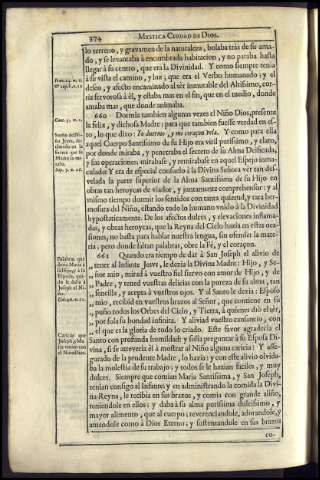 274 MYSTICA CIUDAD DE DIOS.
lo terreno, y gravamen de la naturaleza, bolaba tràs de su ama-
do, y se levantaba à encumbrada habitacion, y no paraba hasta
llegar à su centro, que era la Divinidad. Y como siempre tenia
à su vista el camino, y luz, que era el Verbo humanado; y el
deseo, y afecto encaminado al sèr inmutable del Altissimo, cor-
ria fervorosa à èl, y estaba mas en el fin, que en el medio, donde
amaba mas, que donde animaba.
660 Dormia tambien algunas vezes el Niño Dios, presente
la feliz, y dichosa Madre; para que tambien fuesse verdad en es-
to, lo que dixo: Io duermo, y mi coraçon vela. Y como para ella
aquel Cuerpo Santissimo de su Hijo era viril purissimo, y claro,
por donde miraba, y penetraba el secreto de su Alma Deificada,
y sus operaciones; mirabase, y remirabase en aquel Espejo inma-
culado: Y era de especial consuelo à la Divina Señora ver tan des-
velada la parte superior de la Alma Santissima de su Hijo en
obras tan heroycas de viador, y juntamente comprehensor; y al
mismo tiempo dormir los sentidos con tanta quietud, y rara her-
mosura del Niño, estando todo lo humano vnido à la Divinidad
hypostaticamente. De los afectos dulces, y elevaciones inflama-
das, y obras heroycas, que la Reyna del Cielo hazia en estas oca-
siones, no basta para hablar nuestra lengua, sin ofender la mate-
ria: pero donde faltan palabras, obre la Fè, y el coraçon.
661 Quando era tiempo de dar à San Joseph el alivio de
„ tener al Infante Jesvs, le dezia la Divina Madre: Hijo, y Se-
„ ñor mio, mirad à vuestro fiel siervo con amor de Hijo, y de
„ Padre, y tened vuestras delicias con la pureza de su alma, tan
„ sencilla, y acepta à vuestros ojos. Y al Santo le dezia: Esposo
„ mio, recibid en vuestros braços al Señor, que contiene en su
„ puño todos los Orbes del Cielo, y Tierra, à quienes diò el sèr,
„ por sola su bondad infinita. Y aliviad vuestro cansancio, con
„ el que es la gloria de todo lo criado. Este favor agradecia el
Santo con profunda humildad, y solia preguntar à su Esposa Di-
vina, si se atreveria èl à mostrar al Niño alguna caricia? Y asse-
gurado de la prudente Madre, lo hazia: y con este alivio olvida-
ba la molestia de su trabajo; y todos se le hazian faciles, y muy
dulces. Siempre que comian Maria Santissima, y San Joseph,
tenian consigo al Infante; y en administrando la comida la Divi-
na Reyna, le recibia en sus braços, y comia con grande aliño,
teniendole en ellos; y daba à su alma purissima dulcissimo, y
mayor alimento, que al cuerpo; reverenciandole, adorandole, y
amandole como à Dios Eterno; y sustentandole en sus braços
co-